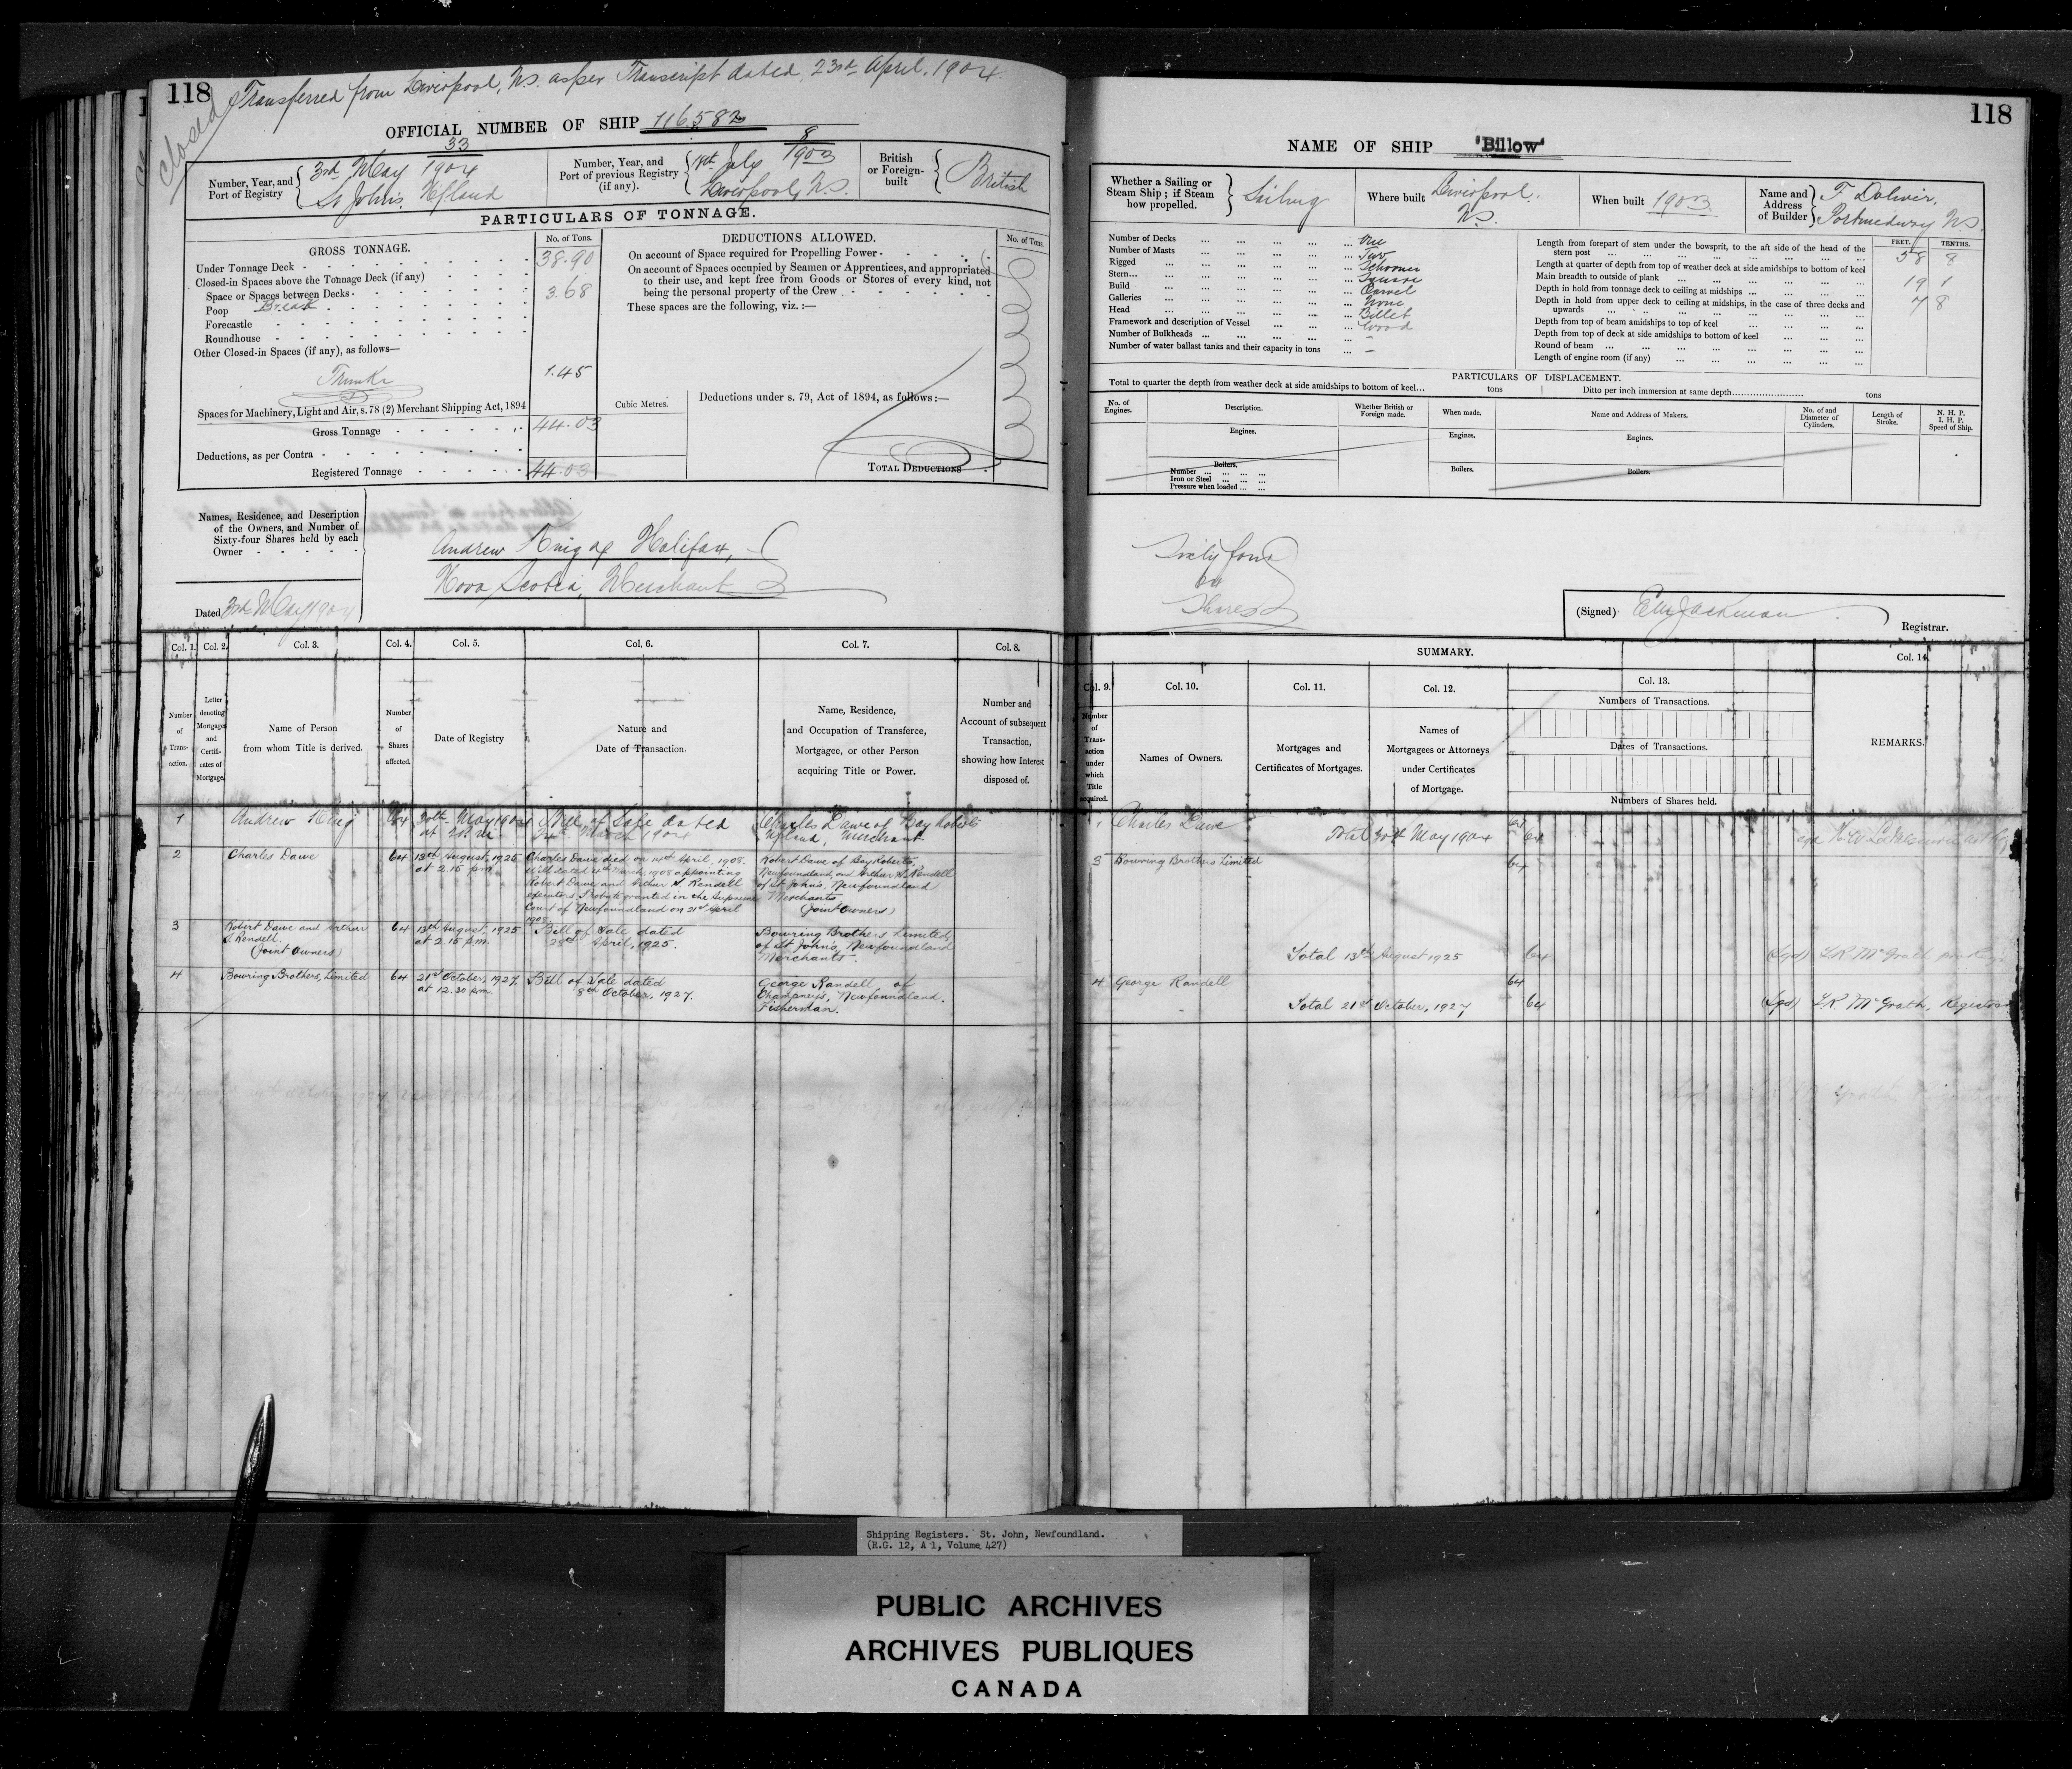 118
Closed
Transferred from Liverpool, N.S. as per Transcript dated 23rd April, 1904.
OFFICIAL NUMBER OF SHIP 116582
Number, Year, and Port of Registry
33
3rd May 1904
St John's, Nfland
Number, Year, and Port of previous Registry (if any).
8
18th July 1903
Liverpool, N.S.
British or Foreign-built
British
PARTICULARS OF TONNAGE.
GROSS TONNAGE.
No. of Tons.
Under Tonnage Deck 38.90
Closed-in Spaces above the Tonnage Deck (if any)
Space or Spaces between Decks 3.68
Poop Break
Forecastle
Roundhouse
Other Closed-in Spaces (if any), as follows—
Trunks 1.45
Spaces for Machinery, Light and Air, s. 78 (2) Merchant Shipping Act, 1894
Gross Tonnage 44.03
Deductions, as per Contra
Registered Tonnage 44.03
Cubic Metres.
DEDUCTIONS ALLOWED.
No. of Tons.
On account of Space required for Propelling Power
On account of Spaces occupied by Seamen or Apprentices, and appropriated
to their use, and kept free from Goods or Stores of every kind, not
being the personal property of the Crew
These spaces are the following, viz. :—
Deductions under s. 79, Act of 1894, as follows :—
TOTAL DEDUCTIONS
Names, Residence, and Description
of the Owners, and Number of
Sixty-four Shares held by each
Owner
Andrew King of Halifax,
Nova Scotia, Merchant
Dated 3rd May 1904
Col. 1.
Col. 2.
Col. 3.
Col. 4.
Col. 5.
Col. 6.
Col. 7.
Col. 8.
Number of Trans-action.
Letter denoting Mortgages and Certifi-cates of Mortgage.
Name of Person from whom Title is derived.
Number of Shares affected.
Date of Registry
Nature and Date of Transaction
Name, Residence, and Occupation of Transferee, Mortgagee, or other Person acquiring Title or Power.
Number and Account of subsequent Transaction, showing how Interest disposed of.
1
Andrew King
64
30th May 1904
Bill of Sale dated
March 1904
Charles Dawe of Bay Roberts
Nfland, Merchant
2
Charles Dawe
64
13th August, 1925
at 2.15 p.m.
Charles Dawe died on
April, 1908.
Will dated
March 1908 appointing
Robert Dawe and Arthur S. Rendell
executors. Probate granted in the Supreme
Court of Newfoundland on 21st April
1908.
Robert Dawe of Bay Roberts,
Newfoundland, and Arthur S. Rendell
of St John's, Newfoundland
Merchants
(Joint Owners)
3
Robert Dawe and Arthur
S. Rendell.
(Joint Owners)
64
13th August, 1925
at 2.15 p.m.
Bill of Sale dated
28th April, 1925.
Bowring Brothers Limited,
of St John's, Newfoundland
Merchants.
4
Bowring Brothers, Limited
64
21st October, 1927,
at 12.30 p.m.
Bill of Sale dated
8th October, 1927.
George Randell, of
Champneys, Newfoundland.
Fisherman.
118
NAME OF SHIP "Billow"
Whether a Sailing or Steam Ship; if Steam how propelled.
Sailing
Where built
Liverpool,
N.S.
When built 1903
Name and Address of Builder
F. Doliver,
Portmedway N.S.
Number of Decks One
Number of Masts Two
Rigged Schooner
Stern Square
Build Carvel
Galleries None
Head Billet
Framework and description of Vessel Wood
Number of Bulkheads -
Number of water ballast tanks and their capacity in tons -
FEET. TENTHS.
Length from forepart of stem under the bowsprit, to the aft side of the head of the
stern post 58 8
Length at quarter of depth from top of weather deck at side amidships to bottom of keel
Main breadth to outside of plank 19 1
Depth in hold from tonnage deck to ceiling at midships 7 8
Depth in hold from upper deck to ceiling at midships, in the case of three decks and
upwards
Depth from top of beam amidships to top of keel
Depth from top of deck at side amidships to bottom of keel
Round of beam
Length of engine room (if any)
PARTICULARS OF DISPLACEMENT.
Total to quarter the depth from weather deck at side amidships to bottom of keel... tons
Ditto per inch immersion at same depth tons
No. of Engines.
Description.
Whether British or Foreign made.
When made.
Name and Address of Makers.
No. of and Diameter of Cylinders.
Length of Stroke.
N. H. P.
I. H. P.
Speed of Ship.
Engines.
Engines.
Engines.
Boilers.
Number
Iron or Steel
Pressure when loaded
Boilers.
Boilers.
Sixty four
64
Shares
(Signed)
Jackman
Registrar.
SUMMARY.
Col. 9.
Col. 10.
Col. 11.
Col. 12.
Col. 13.
Col. 14.
Number of Trans-action under which Title acquired.
Names of Owners.
Mortgages and Certificates of Mortgages.
Names of Mortgagees or Attorneys under Certificates of Mortgage.
Numbers of Transactions.
Dates of Transactions.
Numbers of Shares held.
REMARKS.
1 Charles Dawe 64
Total 30th May 1904 64
3 Bowring Brothers Limited 64
Total 13th August 1925 64 (Sgd) L.R. McGrath
4 George Randell 64
Total 21st October, 1927 64 (Sgd) L.R. McGrath, Registrar
Shipping Registers. St. John, Newfoundland.
(R.G. 12, A 1, Volume 427)
PUBLIC ARCHIVES
ARCHIVES PUBLIQUES
CANADA